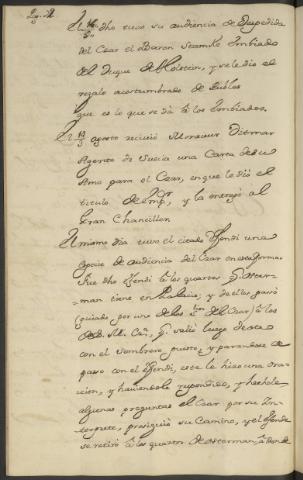 dho tuvo su audiencia de despedida
del Czar el Baron Stamke Imbiado
del Duque de Holstein, y se le dio el
regalo acostumbrado de Rublos
que es lo que se da a los Imbiados.
agosto recivió Monsieur Ditmar
Agente de Suecia una Carta de su
Amo para el Czar, en que le dió el
titulo de Emp.or, y la entregó al
Gran Chanciller
El mismo dia tuvo el citado Efendi una
especie de audiencia del Czar en esta forma.
Fue dho Efendi a los quartos q.e Oster-
man tiene en Palacio; y de ellos pasó
guiado por uno de los del Czar, a los
de S. M. Cza.a, q.n salió luego
con el Sombrero puesto, y parandose de
paso con el Efendi, este le hizo una ora-
cion, y haviendole respondido, y hechole
algunas preguntas el Czar por su In-
terprete, prosiguió su Camino, y el Efendi
se retiró a los quartos de Osterman, a donde